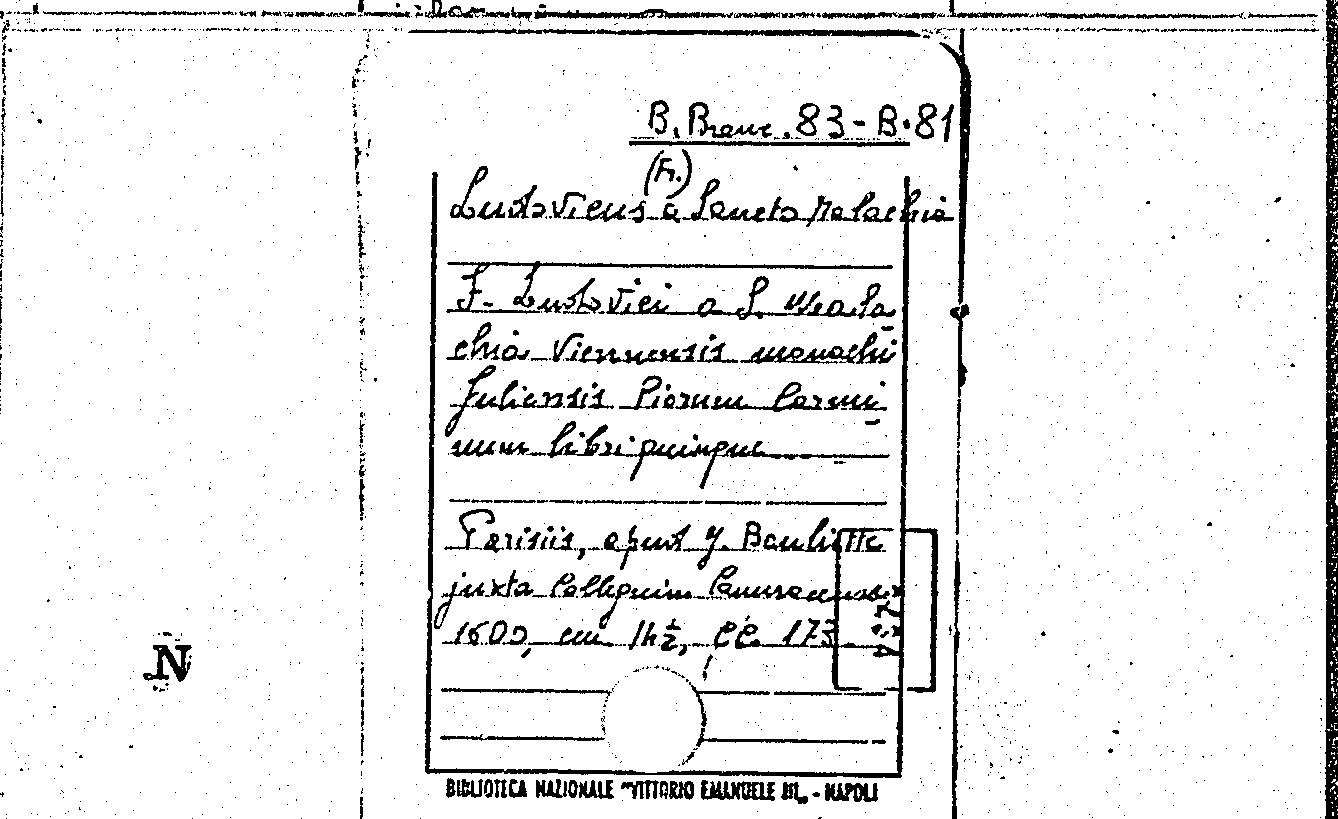 B. Branc. 83 - B. 81
(Fr.)
Ludovicus a Sancto Malachia
F. Ludovici a S. Mala
chia Viennensis monachi
Juliensis Piorum Carmi
num libri quinque
Parisiis, apud J.
juxta Collegium
1600, cm. 14½, cc. 173
N
BIBLIOTECA NAZIONALE "VITTORIO EMANUELE III„ - NAPOLI